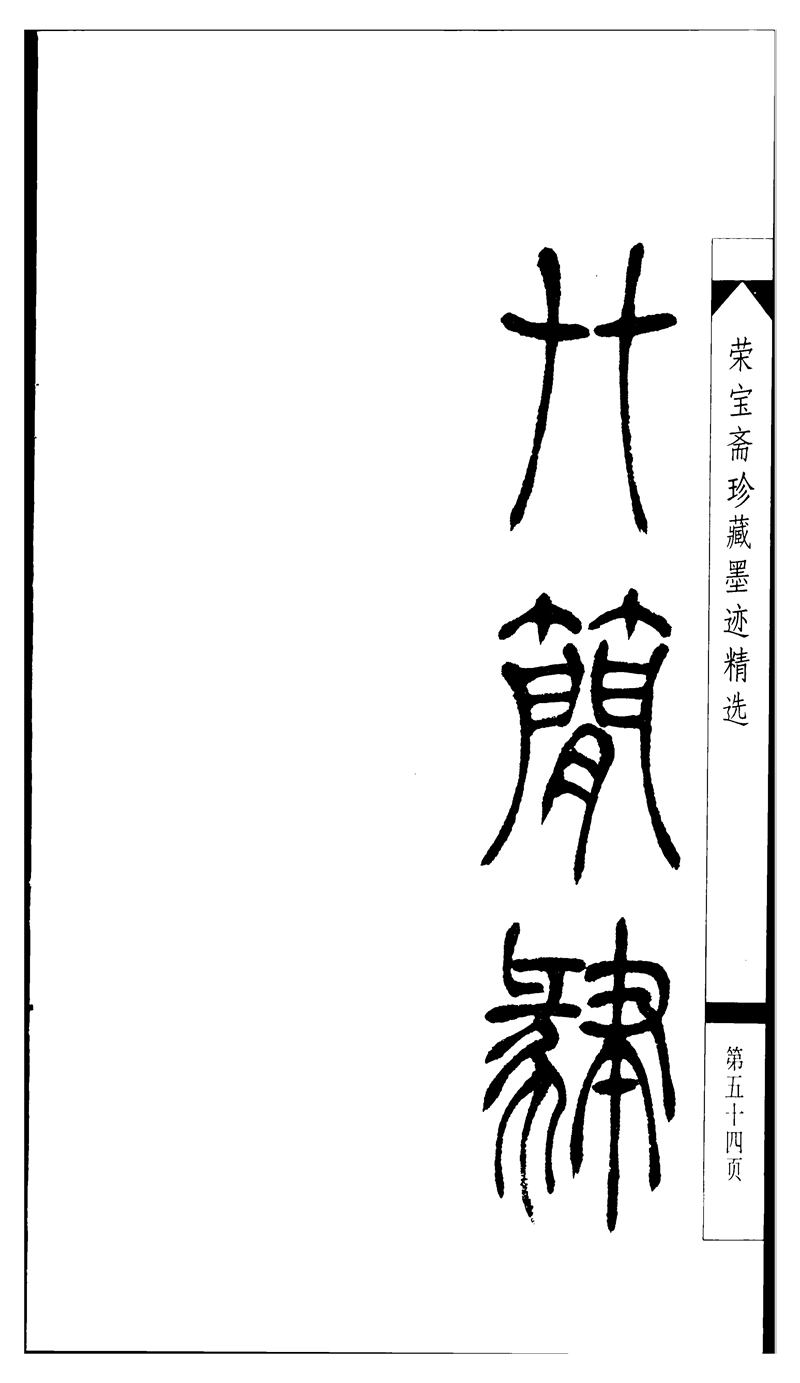 荣宝斋珍藏墨迹精选
第五十四页
簡